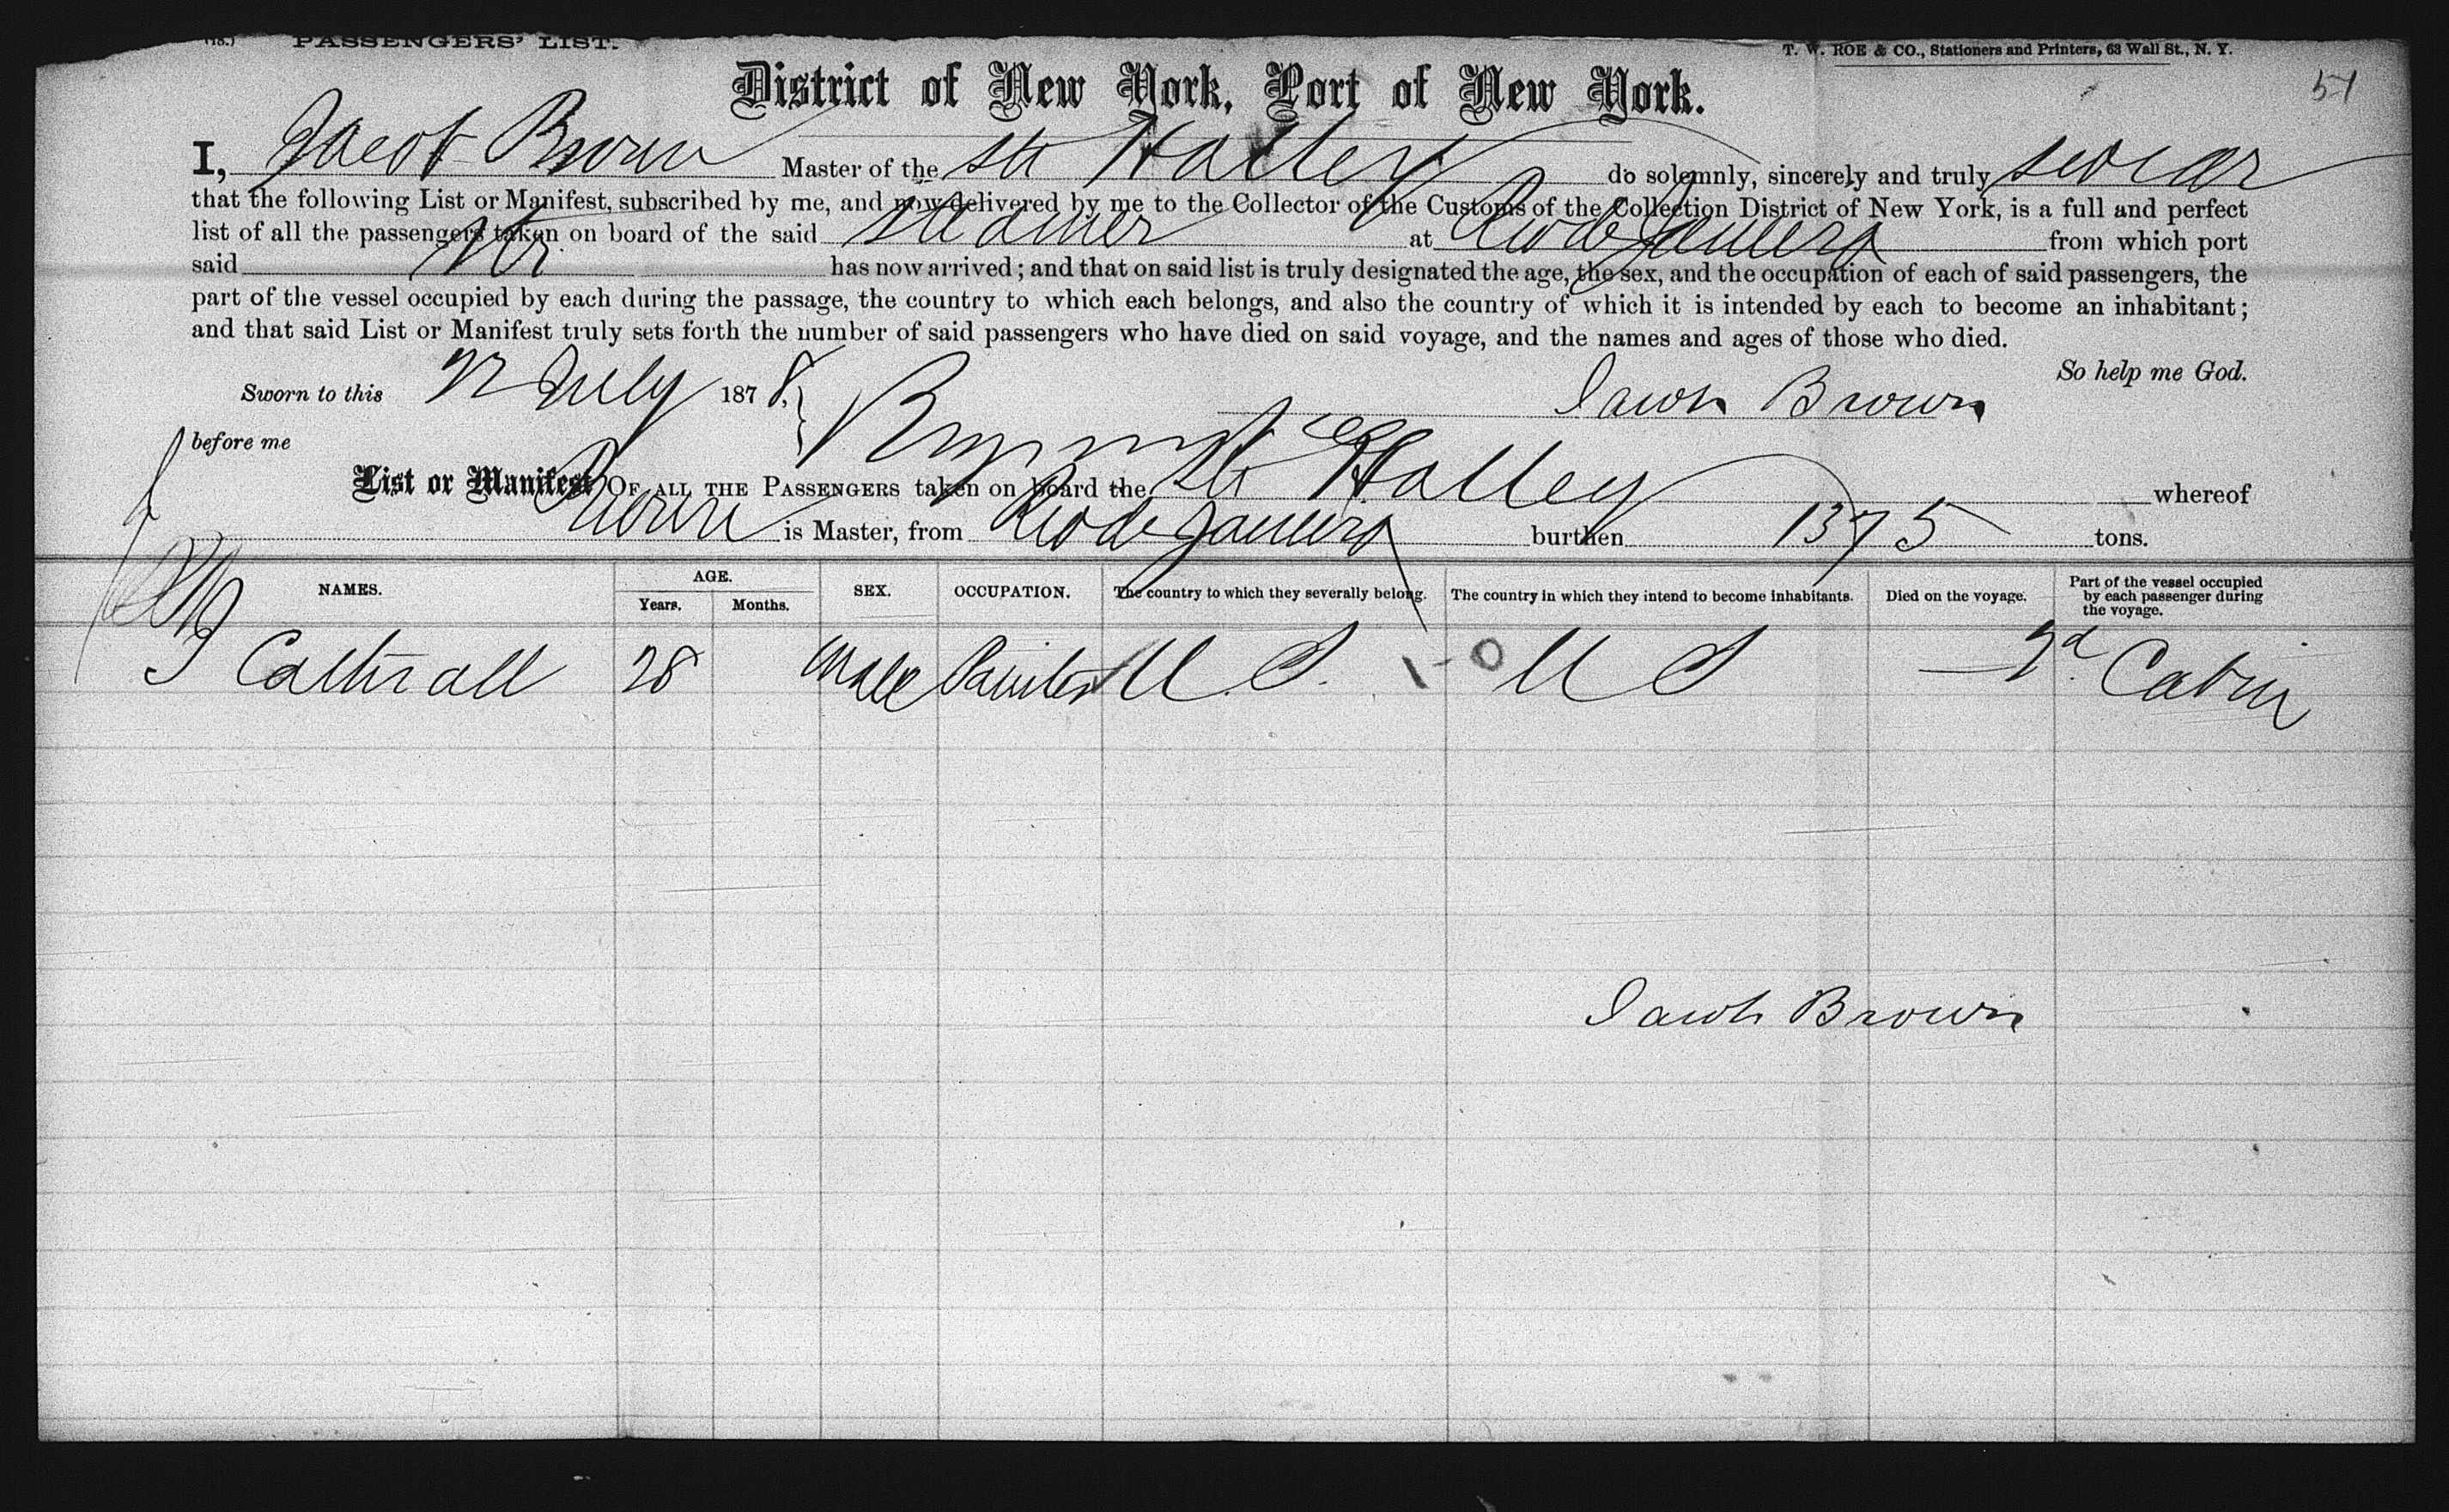 (18.) PASSENGERS' LIST.
T. W. ROE & CO., Stationers and Printers, 63 Wall St., N. Y.
51
District of New York, Port of New York.
I, Jacob Brown Master of the Str Halley do solemnly, sincerely and truly swear
that the following List or Manifest, subscribed by me, and now delivered by me to the Collector of the Customs of the Collection District of New York, is a full and perfect
list of all the passengers taken on board of the said steamer at Rio de Janeiro from which port
said Str has now arrived; and that on said list is truly designated the age, the sex, and the occupation of each of said passengers, the
part of the vessel occupied by each during the passage, the country to which each belongs, and also the country of which it is intended by each to become an inhabitant;
and that said List or Manifest truly sets forth the number of said passengers who have died on said voyage, and the names and ages of those who died.
So help me God.
Sworn to this 22 July 1878, Jacob Brown
before me
List or Manifest OF ALL THE PASSENGERS taken on board the Str Halley whereof
Brown is Master, from Rio de Janeiro burthen 1375 tons.
NAMES. AGE. Years. Months. SEX. OCCUPATION. The country to which they severally belong. The country in which they intend to become inhabitants. Died on the voyage. Part of the vessel occupied by each passenger during the voyage.
J Catterall 28 Male Painter U. S. 1-0 U S — 2d. Cabin
Jacob Brown